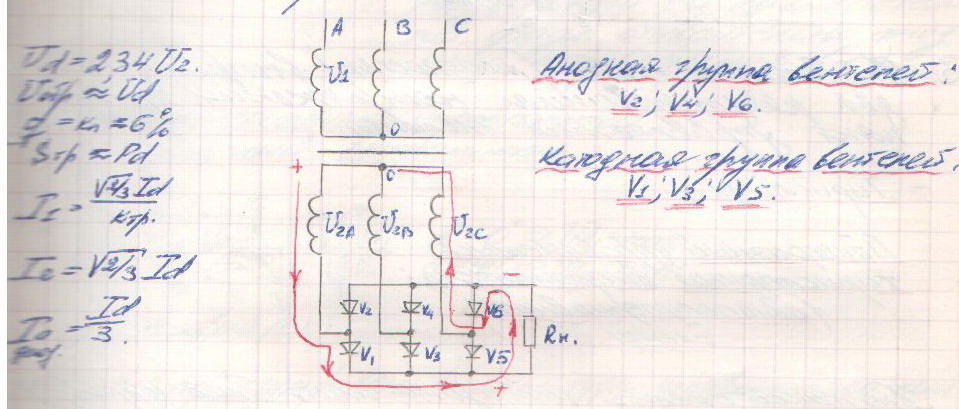 A B C
Ud = 2,34 U2.
Uобр ≈ Ud
q = кп ≈ 6%
Sтр ≈ Pd
I1 = √2/3 Id / Kтр.
I2 = √2/3 Id
Id / 3.
U1
0
+
0
U2A U2B U2C
−
V2 V4 V6
V1 V3 V5
Rн.
+
Анодная группа вентелей:
V2; V4; V6.
Катодная группа вентелей.
V1; V3; V5.